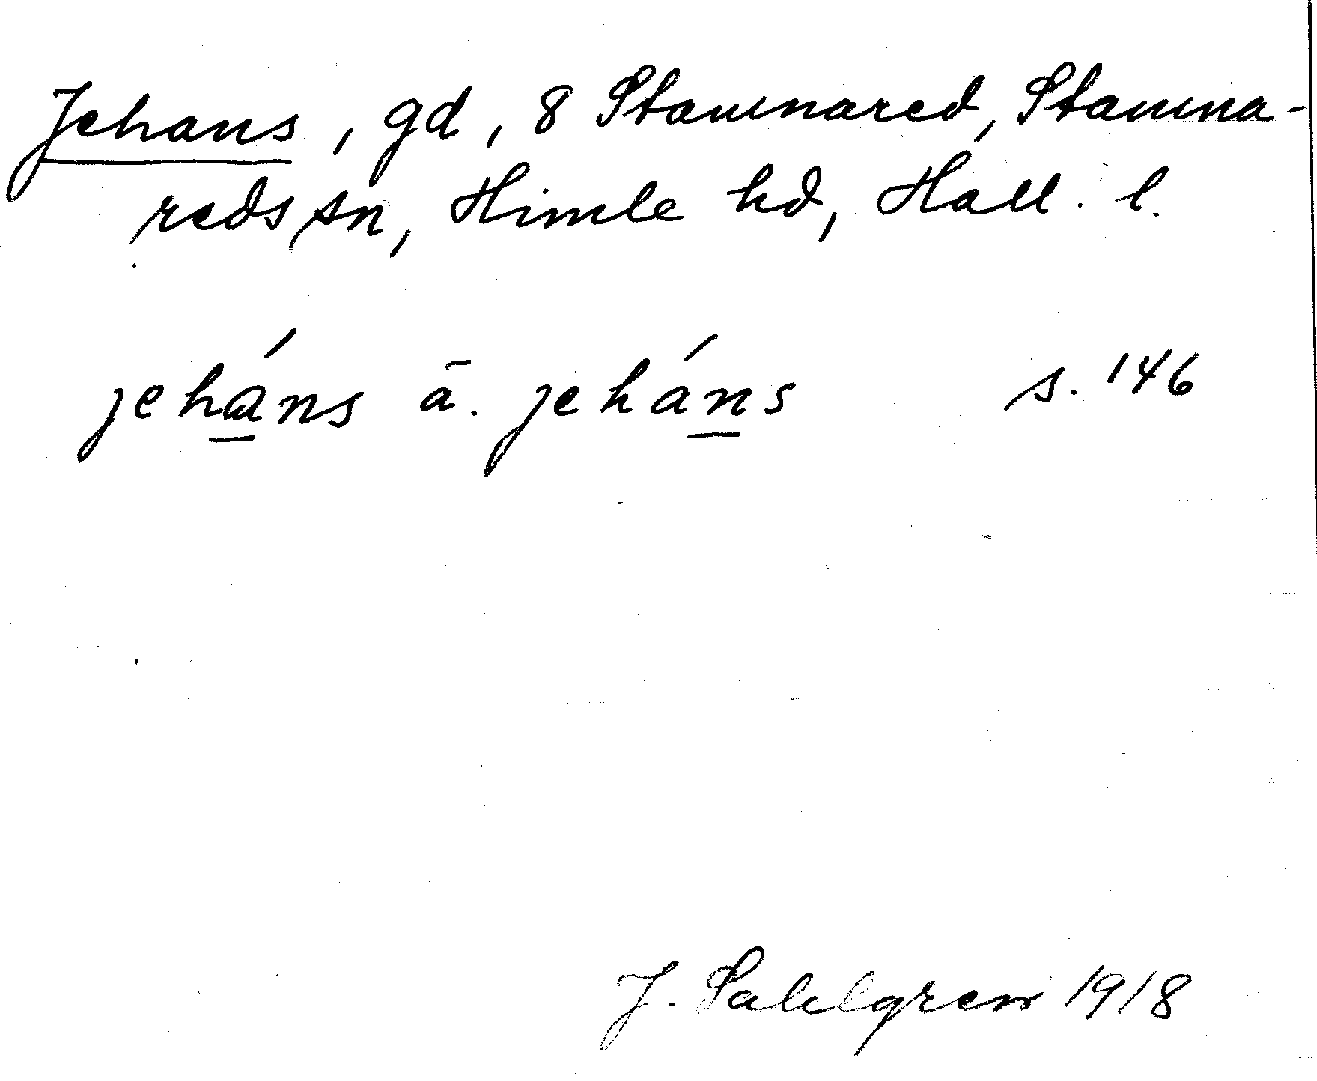 Jehans, gd, 8 Stamnared, Stamna-
reds sn, Himle hd, Hall. l.
jeháns ä. jeháns s. 146
J. Sahlgren 1918